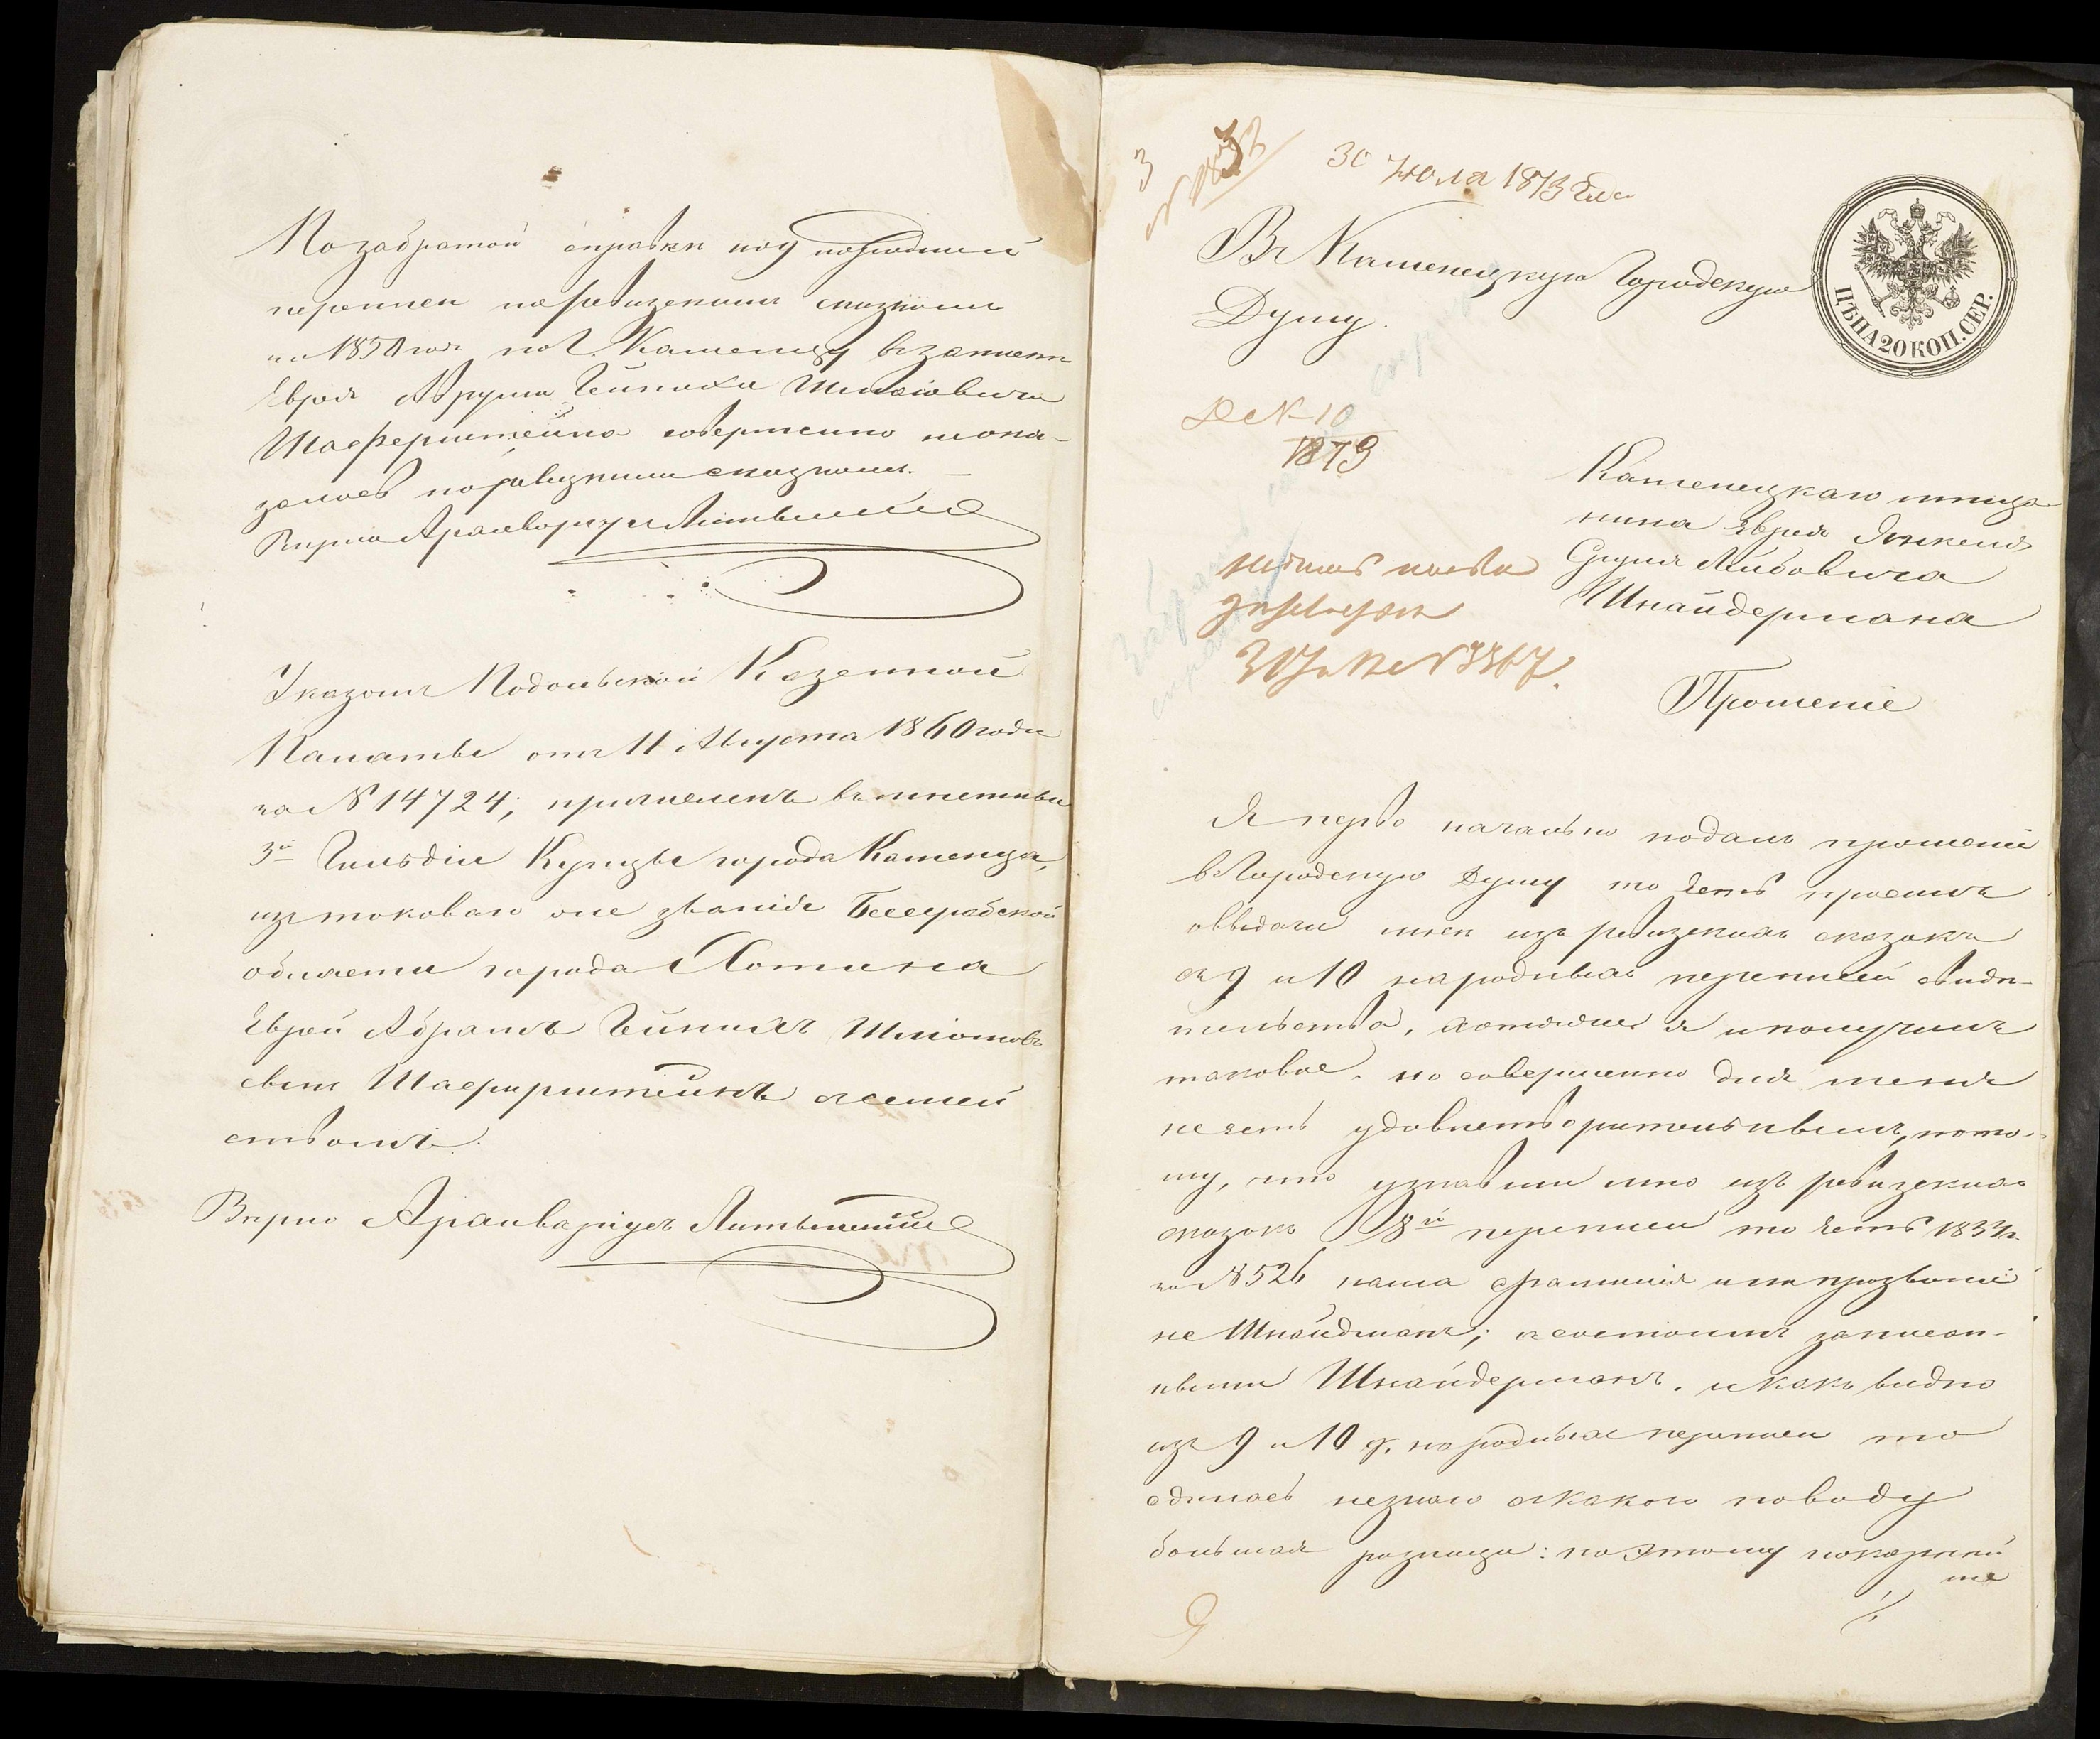 По забратой справки под последней
переписи по ревизскимъ сказкамъ
на 1858 годъ по г. Каменцу въ записи
Еврея Абрума Гейниха Шліомовича
Шаеферштейна совершенно неока-
залось по ревизкимъ сказкамъ. —
Вѣрно Архиваріусъ Литвинскій
Указомъ Подольской Казенной
Палаты отъ 11 Августа 1860 года
за № 14724; причисленъ въ
3й Гильдіи Купцы города Каменца,
изъ таковаго оне званія Бессерабской
области города Хотина
Еврей Абрамъ Гейнихъ Шліомовъ
евичъ Шаефирштейнъ с семей
ствомъ.
Вѣрно Архиваріусъ Литвинскій
3
30 Июля 1873 Года
Въ Каменецкую Городскую
Думу.
ЦѢНА 20 КОП. СЕР.
№ 10
1873
Каменецкаго мѣща
нина Еврея Янкеля
Сруля Лейбовича
Шнайдермана
30 № 3367.
Прошеніе
Я перво начально подалъ прошеніе
въ Городскую Думу то есть просилъ
о выдачи мнѣ изъ ревизскихъ сказокъ
съ 9 и 10 народныхъ переписей свидѣ-
тельства, хотя я и получилъ
таковое, но совершенно для меня
не есть удовлетворительнымъ, пото-
му, что узнавши что изъ ревизскихъ
сказокъ 8й переписи то есть 1834 г.
за № 526 наша фамилія или прозваніе
не Шнайдманъ; а состоимъ записан-
ными Шнайдерманъ. и какъ видно
изъ 9 и 10 народныхъ переписи то
сдѣлаеь незнаю съ какого поводу
большая разница: по этому покорнѣй
ше